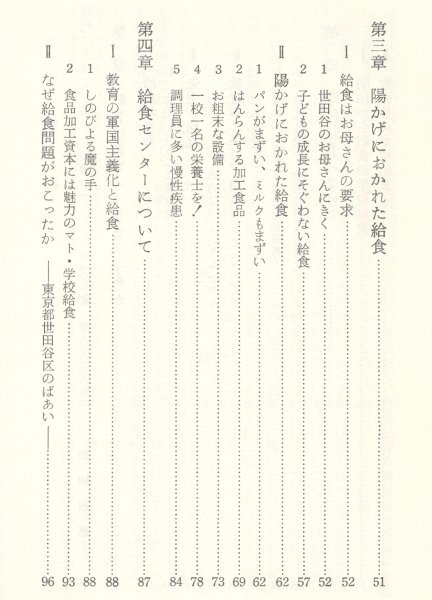 第三章 陽かげにおかれた給食……51
Ⅰ 給食はお母さんの要求……52
1 世田谷のお母さんにきく……52
2 子どもの成長にそぐわない給食……57
Ⅱ 陽かげにおかれた給食……62
1 パンがまずい、ミルクもまずい……62
2 はんらんする加工食品……69
3 お粗末な設備……73
4 一校一名の栄養士を!……78
5 調理員に多い慢性疾患……84
第四章 給食センターについて……87
Ⅰ 教育の軍国主義化と給食……88
1 しのびよる魔の手……88
2 食品加工資本には魅力のマト・学校給食……93
Ⅱ なぜ給食問題がおこったか ――東京都世田谷区のばあい――……96